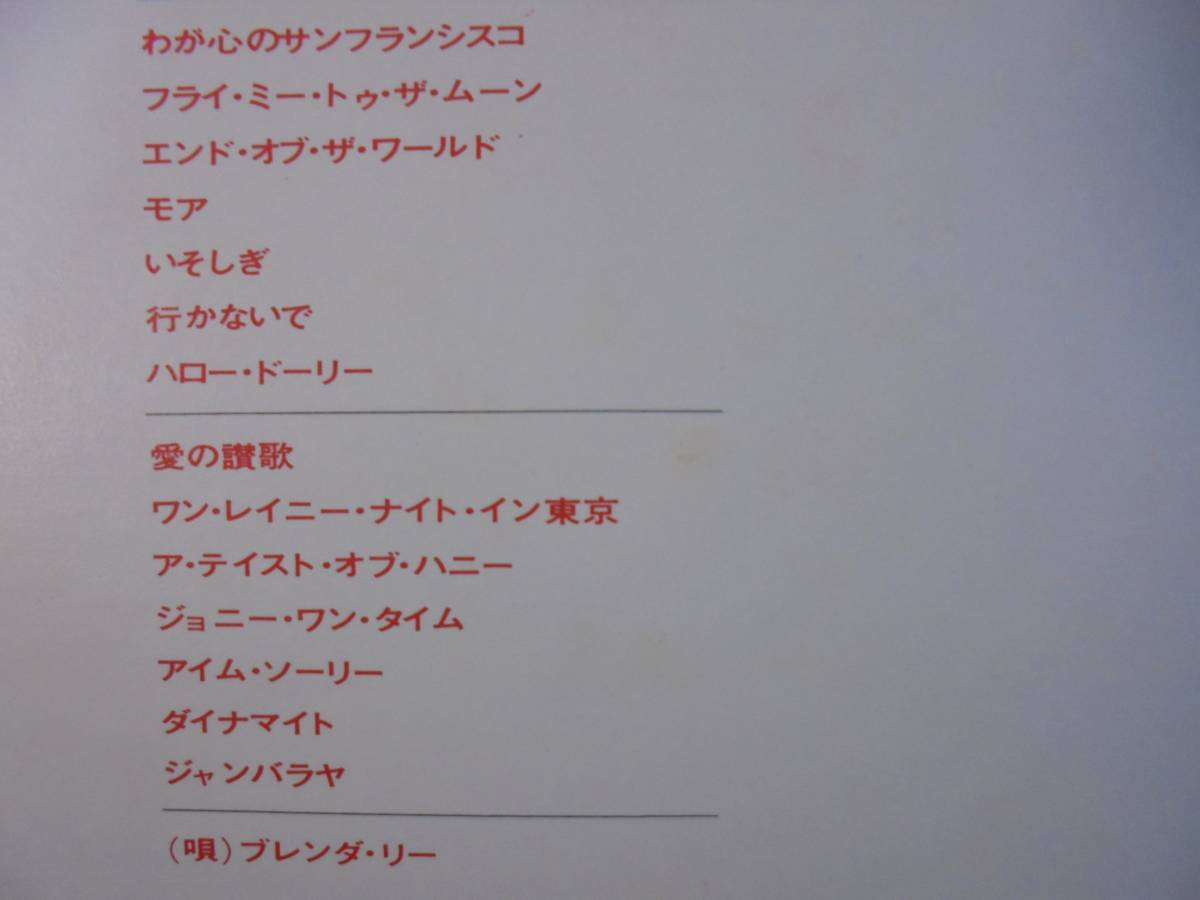 わが心のサンフランシスコ
フライ・ミー・トゥ・ザ・ムーン
エンド・オブ・ザ・ワールド
モア
いそしぎ
行かないで
ハロー・ドーリー
愛の讃歌
ワン・レイニー・ナイト・イン東京
ア・テイスト・オブ・ハニー
ジョニー・ワン・タイム
アイム・ソーリー
ダイナマイト
ジャンバラヤ
(唄)ブレンダ・リー